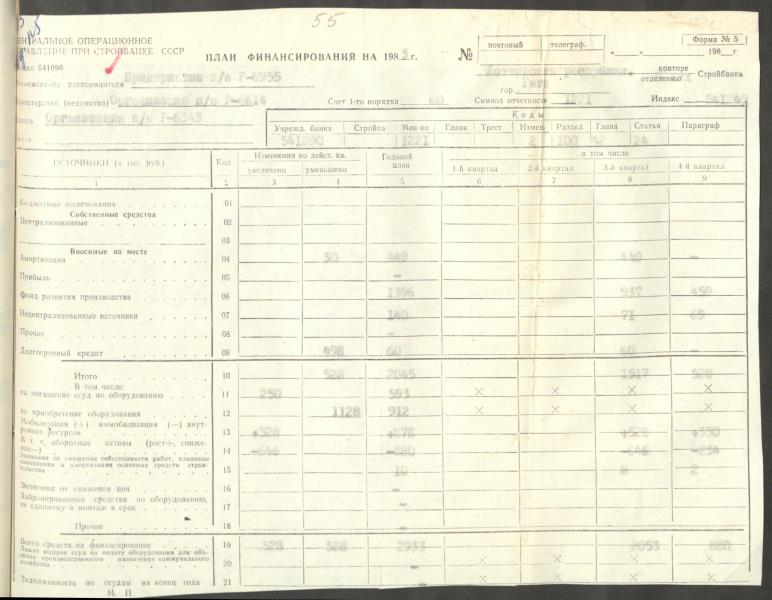 55
ОПЕРАЦИОННОЕ
ПРИ СТРОЙБАНКЕ СССР
541096
Форма № 5
ПЛАН ФИНАНСИРОВАНИЯ НА 198 г. №
почтовый телеграф.
198 г
распорядителя Предприятие п/я Р-6955
гор. Риге
конторе
отделению Стройбанка
(ведомства) Организация п/я Р-6614
Счет 1-го порядка 60 Символ отчетности 1221 Индекс
Организация п/я Р-6543
Коды
Учрежд. банка Стройка Мин во Главк Трест Измен. Раздел Глава Статья Параграф
541090 1221 2 200 42 24
ИСТОЧНИКИ (в тыс. руб.) Код Изменения по действ. кв. Годовой план в том числе
увеличено уменьшено 1-й квартал 2-й квартал 3-й квартал 4-й квартал
1 2 3 4 5 6 7 8 9
Бюджетные ассигнования 01
Собственные средства
Централизованные 02
03
Вносимые на месте
Амортизация 04 30 449 449 —
Прибыль 05 —
Фонд развития производства 06 1396 937 459
Нецентрализованные источники 07 140 71 69
Прочие 08 —
Долгосрочный кредит 09 498 60 60 —
Итого 10 528 2045 1517 528
В том числе:
на погашение ссуд по оборудованию 11 250 593 × × × ×
на приобретение оборудования 12 1128 912 × × × ×
Мобилизация (+) иммобилизация (—) внутренних ресурсов 13 +528 +878 +528 +350
В т. ч. оборотные активы (рост+, снижение—) 14 -646 -880 -646 -234
Экономия от снижения себестоимости работ, плановые
накопления и амортизация основных средств строительства 15 10 8 2
Экономия от снижения цен 16 —
Забронированные средства по оборудованию,
не сданному в монтаж в срок 17 —
Прочие 18 —
Всего средств на финансирование 19 528 528 2933 2053 880
Лимит выдачи ссуд на оплату оборудования для объектов производственного назначения коммунального
хозяйства 20 — × × × ×
Задолженность по ссудам на конец года 21 — × × × ×
М. П.